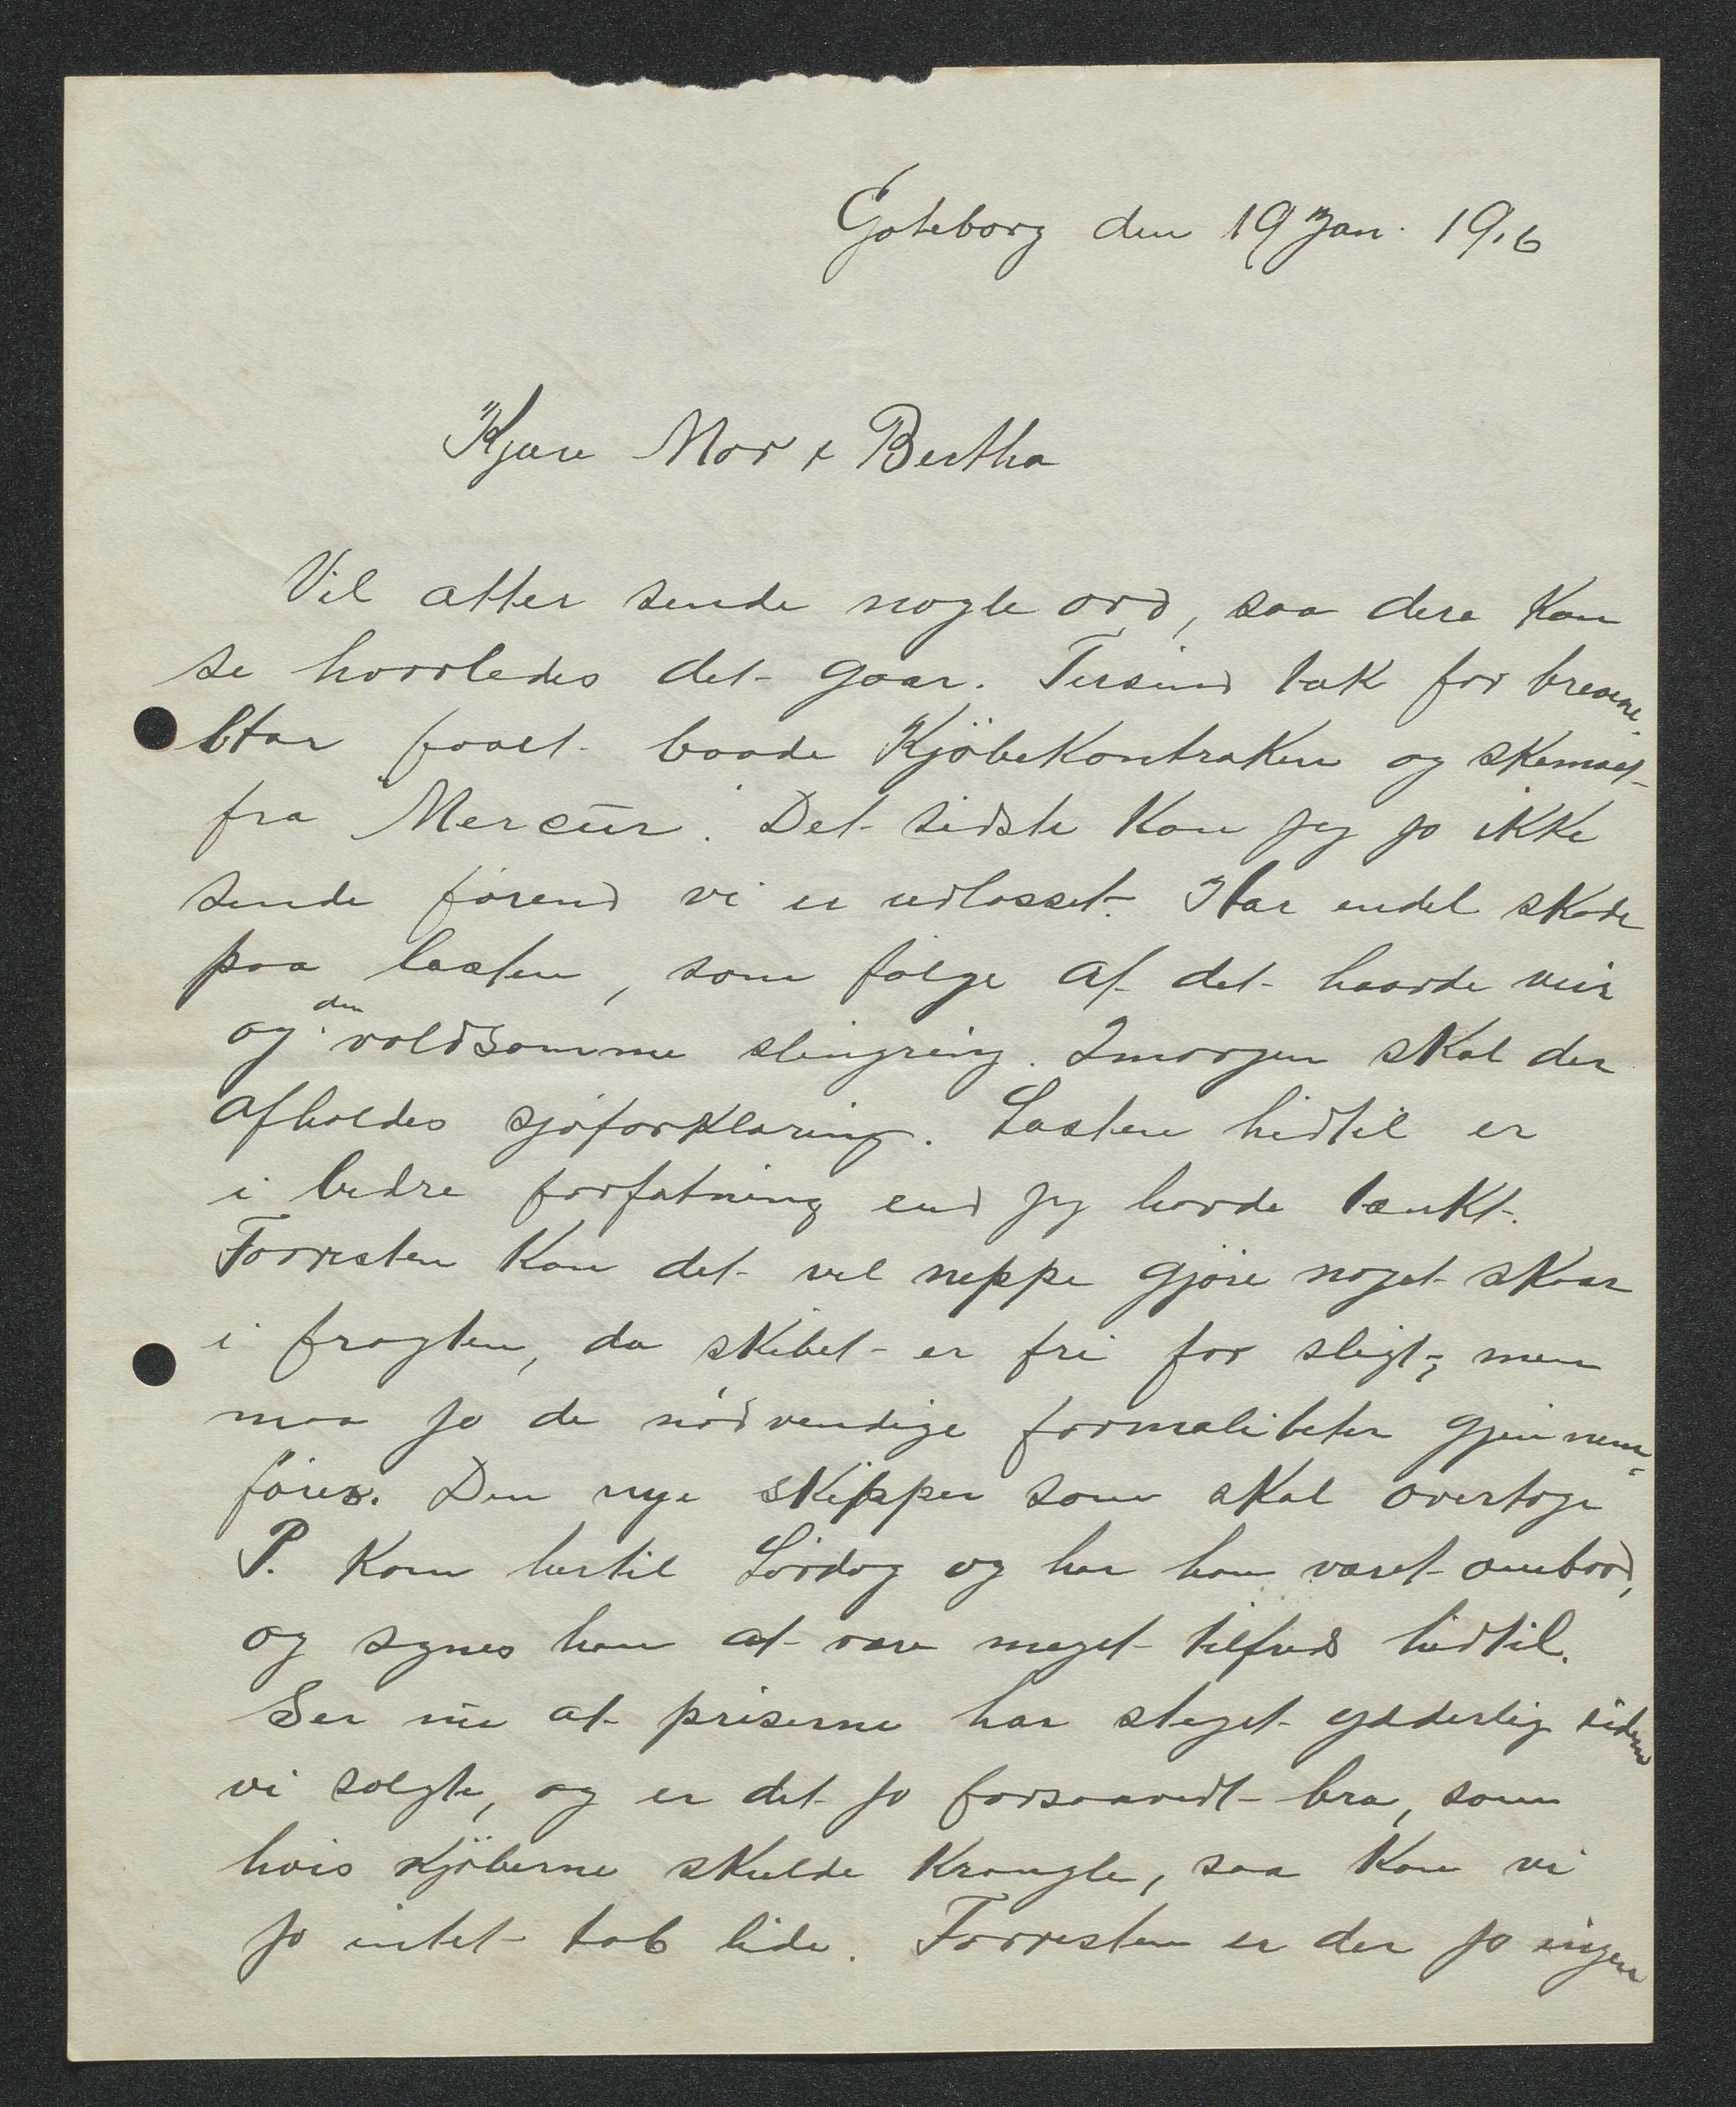 Göteborg den 19 Jan. 1916
Kjære Mor & Bertha
Vil atter sende nogle ord, saa dere kan
se hvorledes det gaar. Tusind tak for brevene.
Har faaet baade Kjöbekontrakten og skemaet
fra "Mercur". Det sidste kan jeg jo ikke
sende förend vi er udlosset. Har endel skade
paa lasten, som fölge af det haarde veir
og den voldsomme slingring. Imorgen skal der
afholdes sjöforklaring. Lasten hidtil er
i bedre forfatning end jeg havde tænkt.
Forresten kan det vel neppe gjöre noget skaar
i fragten, da skibet er fri for sligt, men
maa jo de nödvendige formaliteter gjennem-
föres. Den nye skipper som skal overtage
P. kom hertil Lördag og har han været ombord,
og synes han at være meget tilfreds hidtil.
Ser nu at priserne har steget ydderlig siden
vi solgte, og er det jo forsaavidt bra, som
hvis kjöberne skulde krangle, saa kan vi
jo intet tab lide. Forresten er der jo ingen